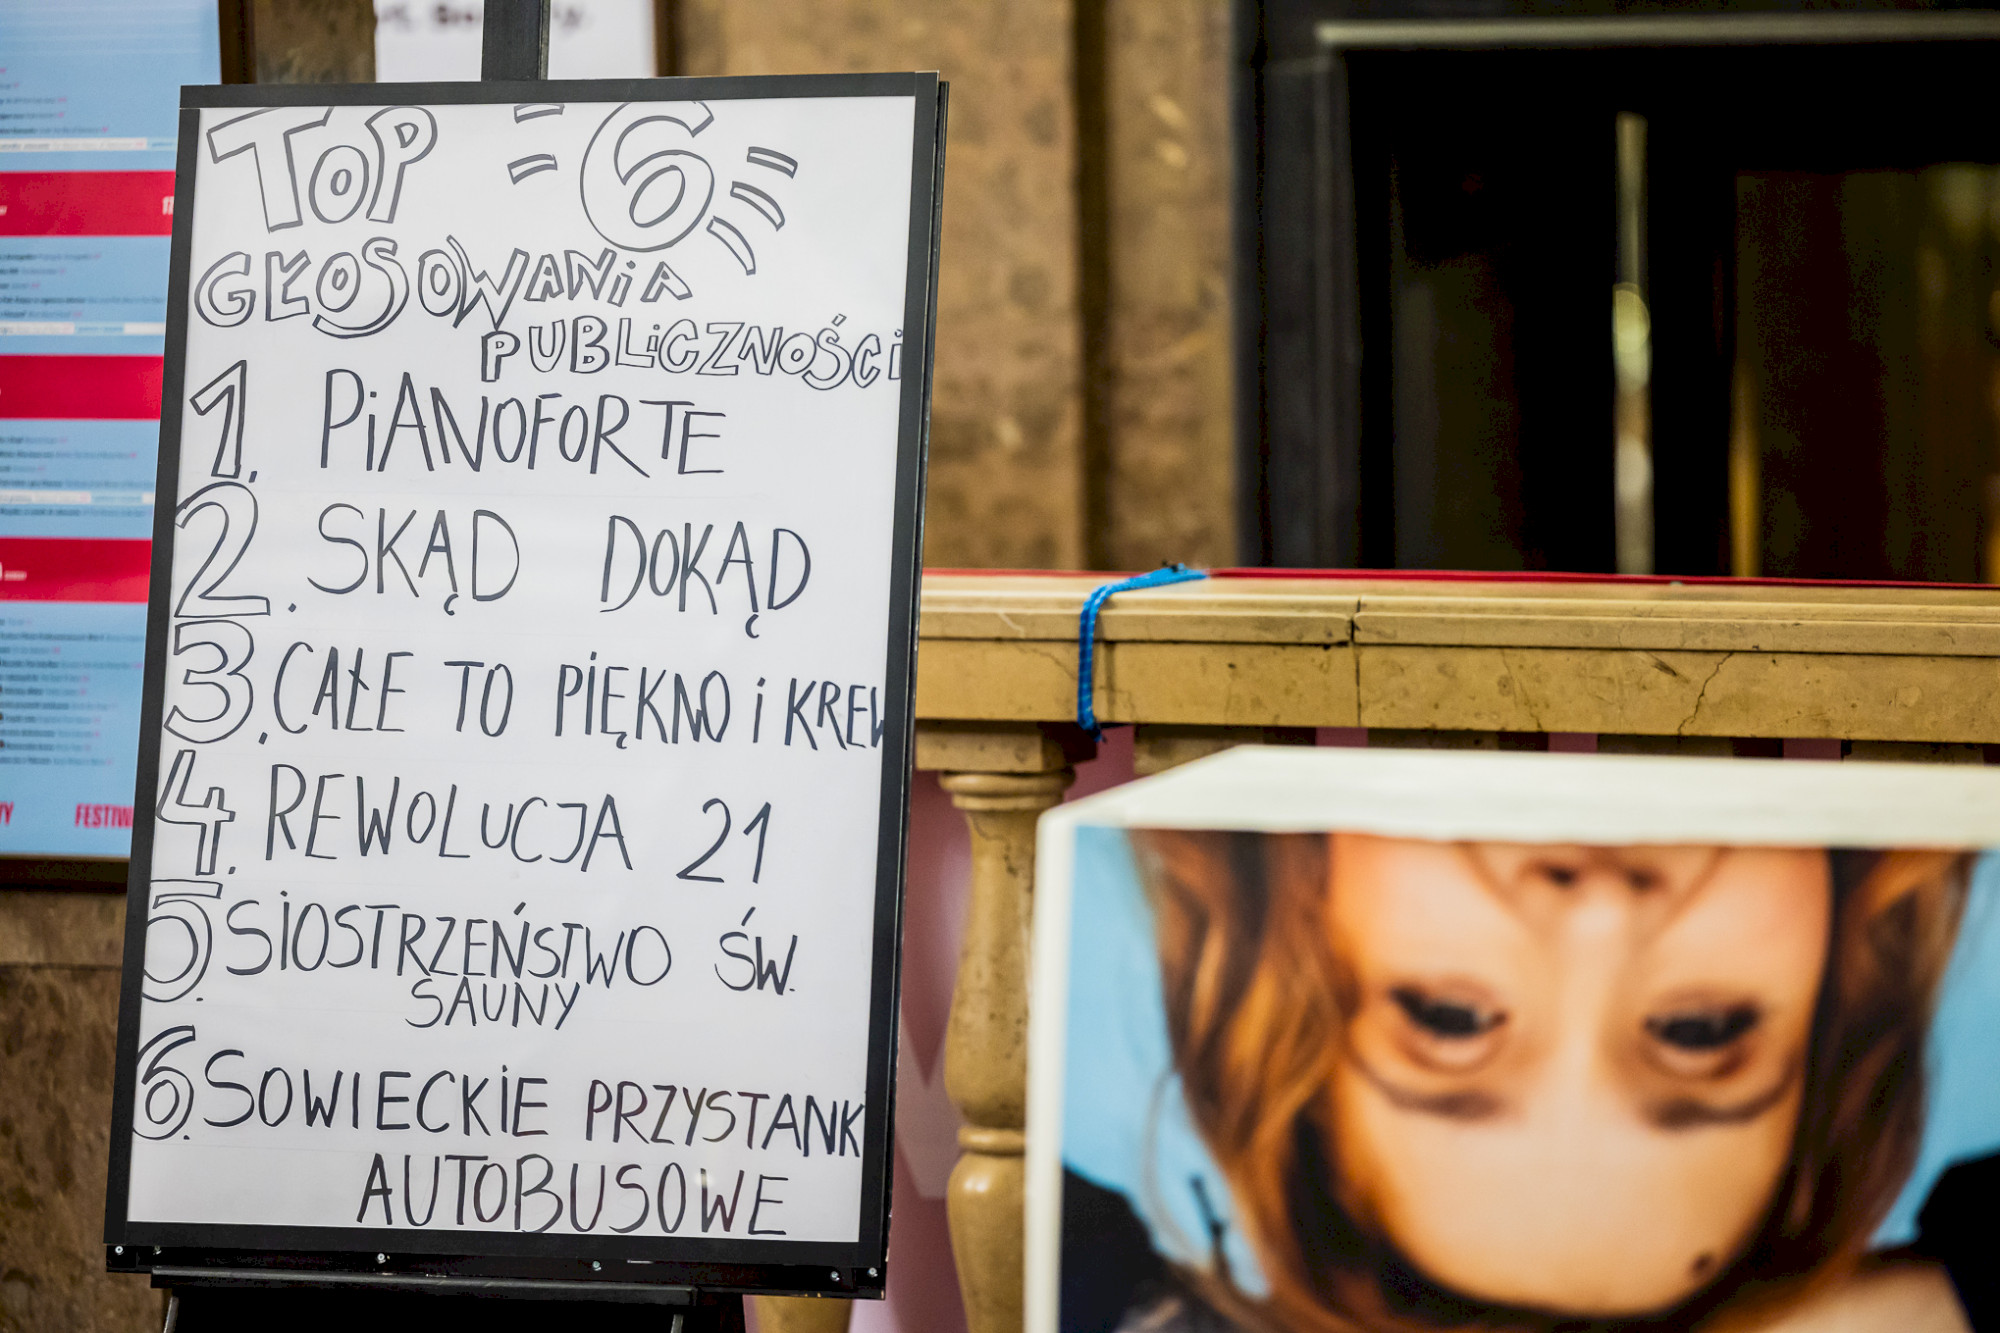 TOP 6
GŁOSOWANIA
PUBLICZNOŚCI
1. PIANOFORTE
2. SKĄD DOKĄD
3. CAŁE TO PIĘKNO I KREW
4. REWOLUCJA 21
5. SIOSTRZEŃSTWO ŚW.
SAUNY
6. SOWIECKIE PRZYSTANK
AUTOBUSOWE